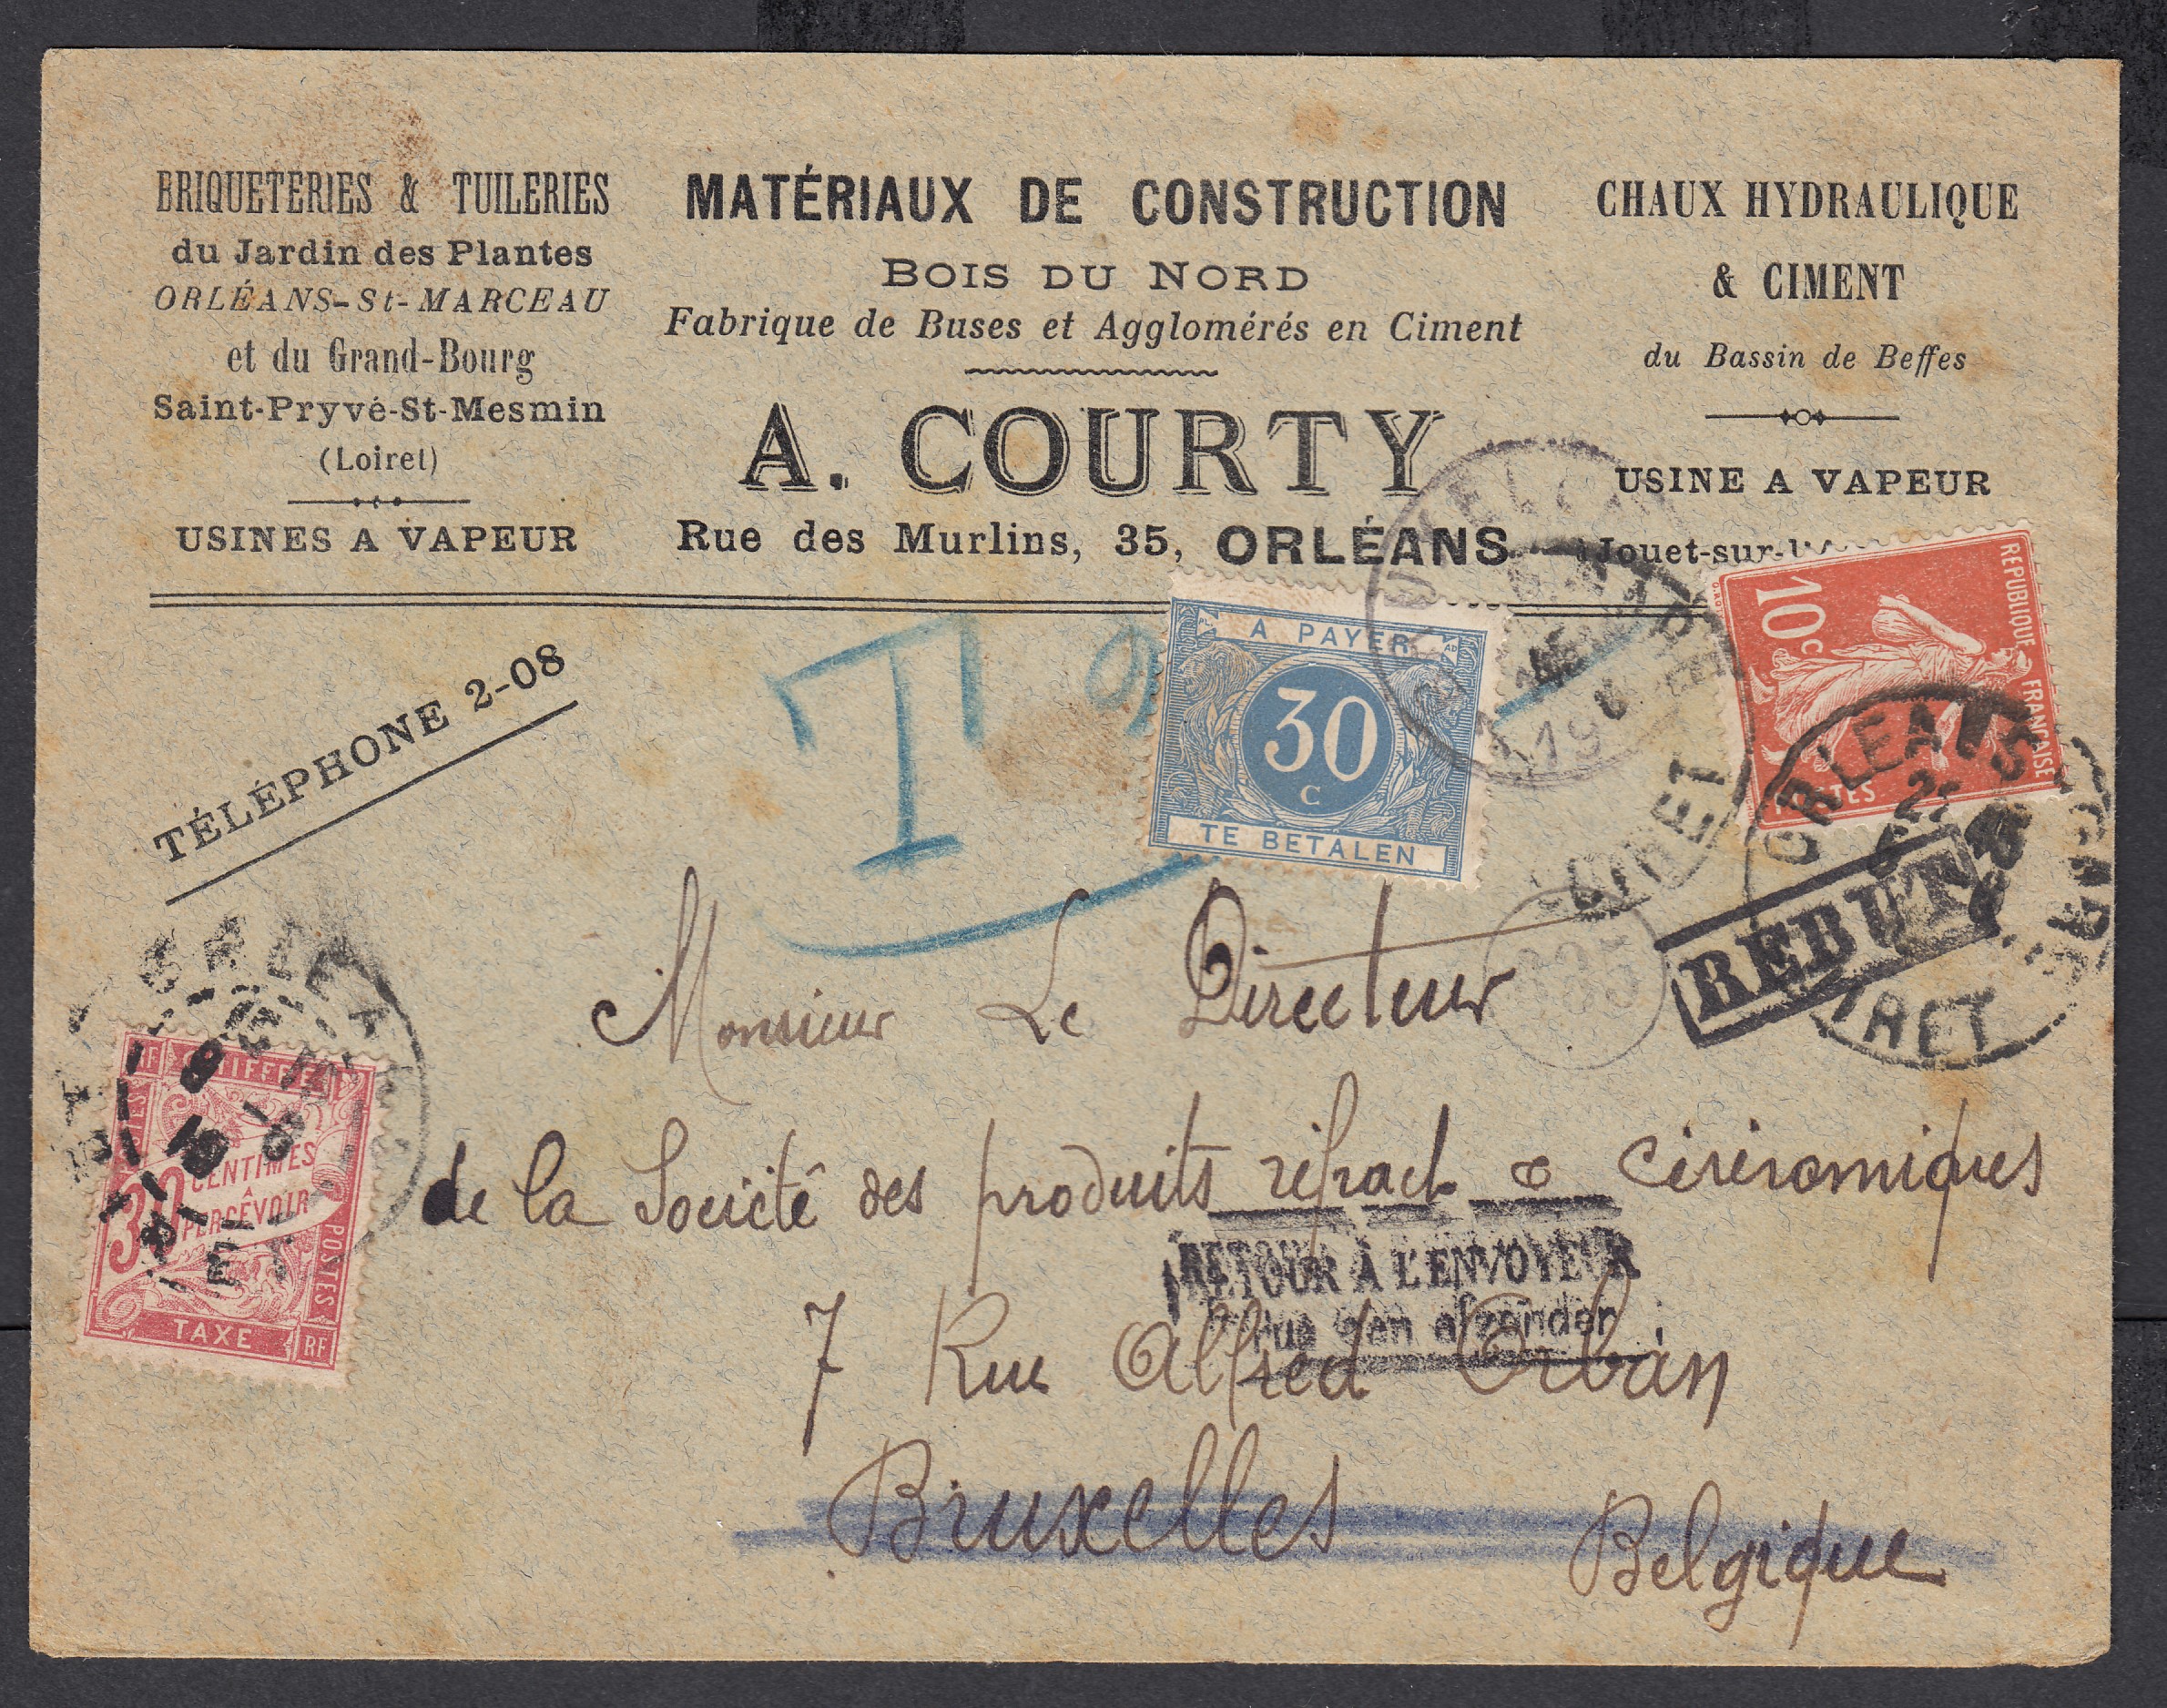 BRIQUETERIES & TUILERIES
du Jardin des Plantes
ORLÉANS-St-MARCEAU
et du Grand-Bourg
Saint-Pryvé-St-Mesmin
(Loiret)
USINES A VAPEUR
MATÉRIAUX DE CONSTRUCTION
BOIS DU NORD
Fabrique de Buses et Agglomérés en Ciment
A. COURTY
Rue des Murlins, 35, ORLÉANS
CHAUX HYDRAULIQUE
& CIMENT
du Bassin de Beffes
USINE A VAPEUR
à Jouet-sur-l'A
TÉLÉPHONE 2-08
T
A PAYER
30
C
TE BETALEN
REPUBLIQUE FRANÇAISE
10c
POSTES
ORLEANS
LOIRET
REBUT
335
Monsieur Le Directeur
de la Société des produits réfract & cérinomiques
RETOUR À L'ENVOYEUR
afzender
7 Rue Alfred Orban
Bruxelles
Belgique
RF
CHIFFRE
POSTES
30 CENTIMES
A
PERCEVOIR
POSTES
TAXE
RF